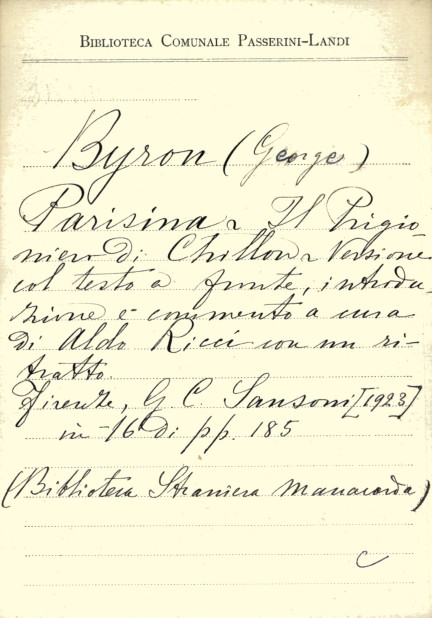 BIBLIOTECA COMUNALE PASSERINI-LANDI
Byron (George)
Parisina e Il Prigio
niero di Chillon e Versione
col testo a fronte, introdu-
zione e commento a cura
di Aldo Ricci con un ri-
tratto.
Firenze, G. C. Sansoni [1923]
in-16 di pp. 185
(Biblioteca Straniera Manacorda)
C